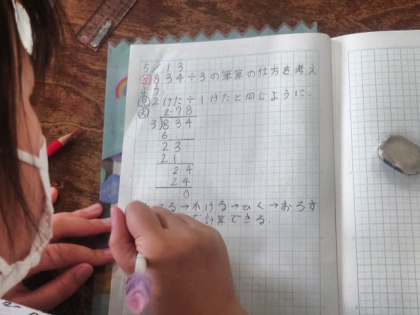 5/13
め 834÷3の筆算の仕方を考え
よう.
2けた÷1けたと同じように、
278
3)834
6
23
21
24
24
0
る→かける→ひく→おろす
計算できる.